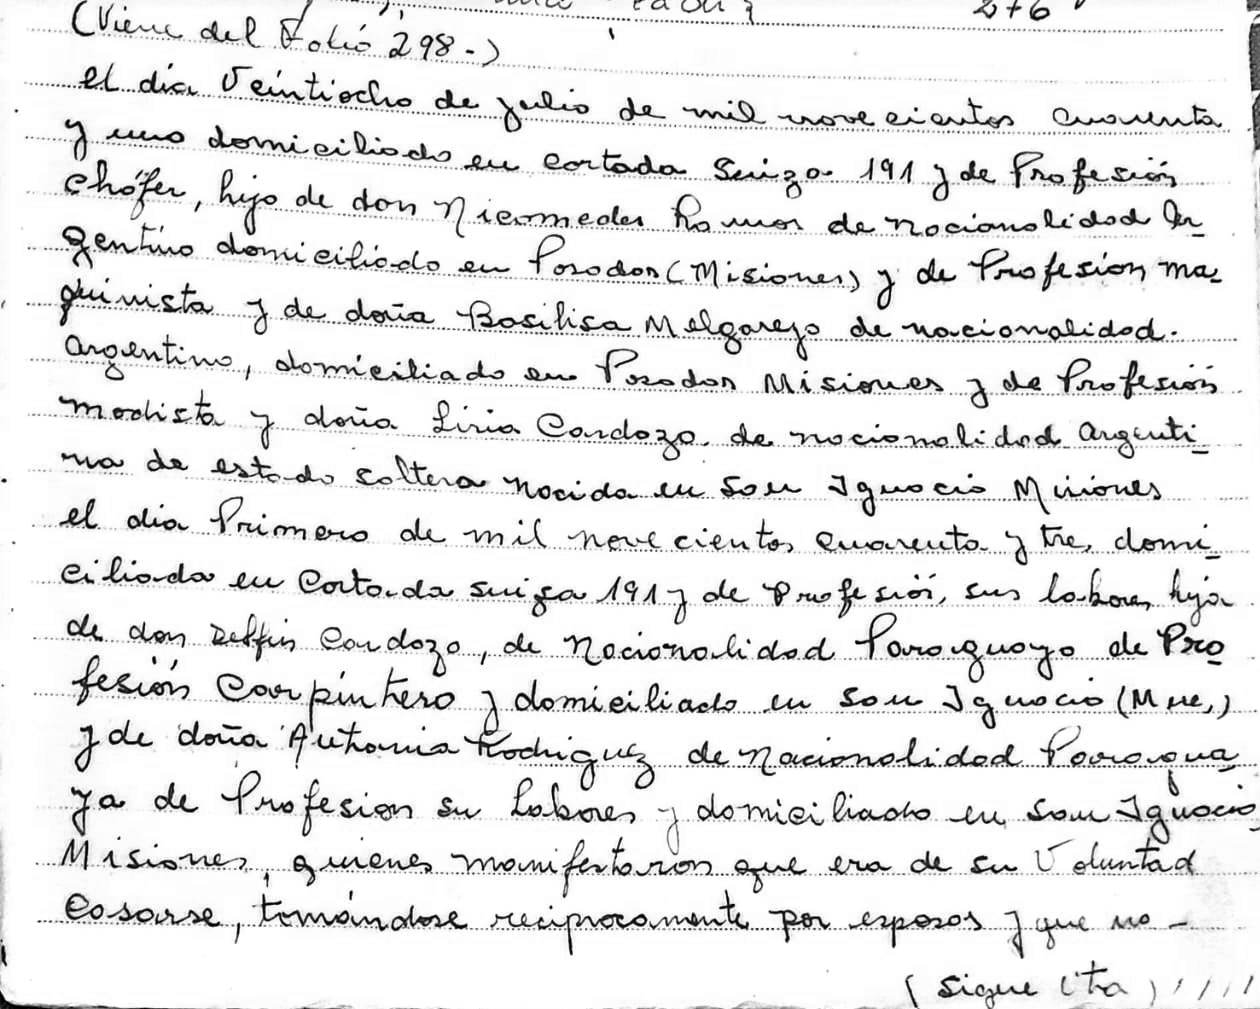 276
(Viene del Folio 298.-)
el dia Veintiocho de julio de mil novecientos cuarenta
y uno domiciliado en cortada Suiza 191 y de Profesión
chófer, hijo de don Nicomedes Ramos de nacionalidad Ar_
gentino domiciliado en Posadas (Misiones) y de Profesión ma_
quinista y de doña Basilisa Melgarejo de nacionalidad.
argentino, domiciliado en Posadas Misiones y de Profesión
modista y doña Liria Cardozo de nacionalidad argenti_
na de estado soltera nacida en San Ignacio Misiones
el dia Primero de mil novecientos cuarenta y tres, domi_
ciliada en Cortada suiza 191 y de Profesión, sus labores, hija
de don Delfin Cardozo, de Nacionalidad Paraguayo de Pro_
fesión Carpintero y domiciliado en San Ignacio (Mnes,)
y de doña Antonia Rodriguez de Nacionalidad Paragua_
ya de Profesion su Labores y domiciliado en San Ignacio
Misiones, quienes manifestaron que era de su Voluntad
casarse, tomándose reciprocamente por esposos y que no -
(sigue (ta) /////